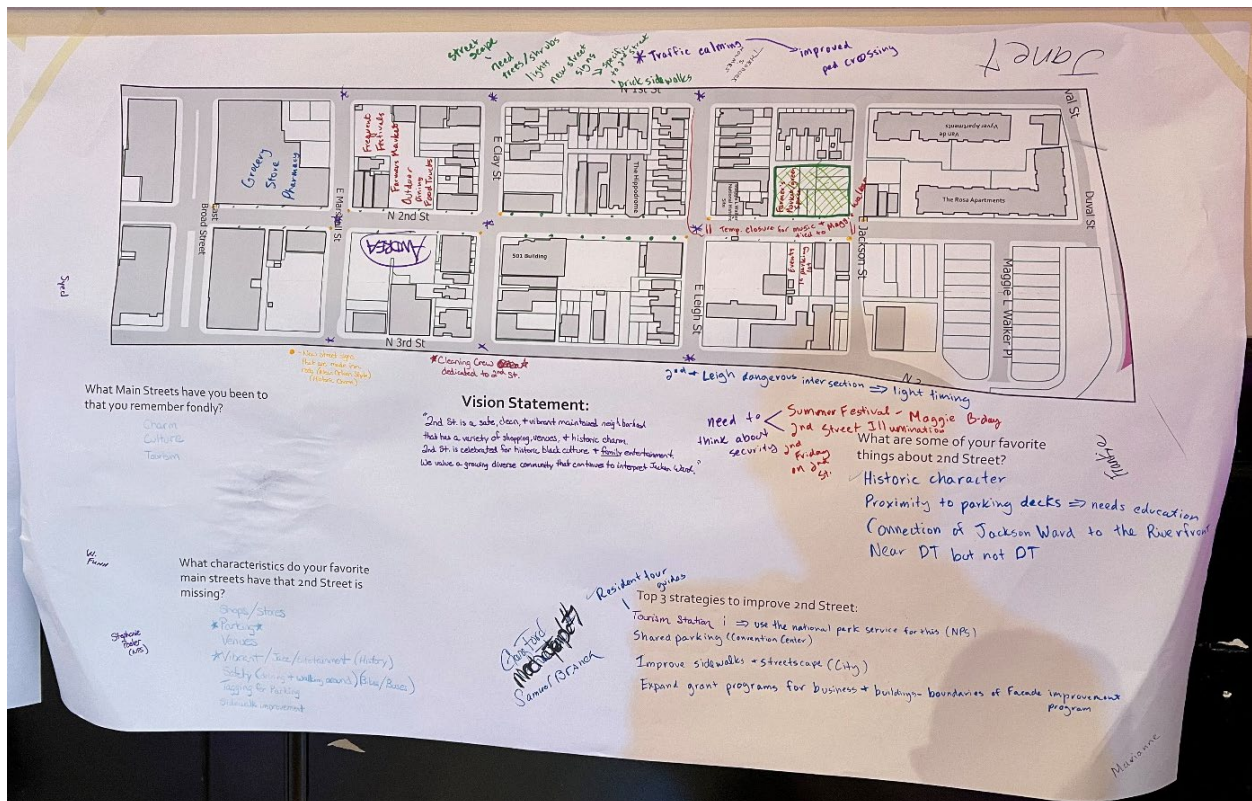 street scape
need trees/shrubs
lights
new street signs
specific to 2nd street
* Traffic calming → improved
ped crossing
brick sidewalks
N 1st St
Janet
Duval St
Grocery
Store
Pharmacy
Frequent
Festivals
Farmers Market
Outdoor
Dining
Food Trucks
The Hippodrome
Van de
Vyver Apartments
The Rosa Apartments
Farmer's
East
Broad Street
E Marshall St
E Clay St
E Leigh St
E Jackson St
Maggie L Walker Pl
Duval St
N 2nd St
Temp. closure for music
Events
in parking
lot
ANDREA
501 Building
N 3rd St
Syed
- New street signs
that are made
(Historic Charm)
*Cleaning Crew *
dedicated to 2nd St.
2nd + Leigh dangerous intersection ⇒ light timing
What Main Streets have you been to
that you remember fondly?
Charm
Culture
Tourism
Vision Statement:
"2nd St. is a safe, clean, + vibrant maintained neighborhood
that has a variety of shopping, venues, + historic charm.
2nd St. is celebrated for historic black culture + family entertainment.
We value a growing diverse community that continues to interpret Jackson Ward."
need to
think about
security
Summer Festival - Maggie B-day
2nd Street Illumination
2nd
Friday
on 2nd
St.
What are some of your favorite
things about 2nd Street?
Historic character
Proximity to parking decks ⇒ needs education
Connection of Jackson Ward to the Riverfront
Near DT but not DT
W.
Funn
What characteristics do your favorite
main streets have that 2nd Street is
missing?
Shops/Stores
*Parking*
Venues
*Vibrant/Jazz/entertainment (History)
Safety (driving + walking around) (Bikes/Buses)
Tagging for Parking
Sidewalk improvement
Stephanie
(NPS)
Samuel Branch
Resident tour
guides
Top 3 strategies to improve 2nd Street:
Tourism Station i ⇒ use the national park service for this (NPS)
Shared parking (Convention Center)
Improve sidewalks + streetscape (City)
Expand grant programs for business + buildings - boundaries of Facade improvement
program
Marianne